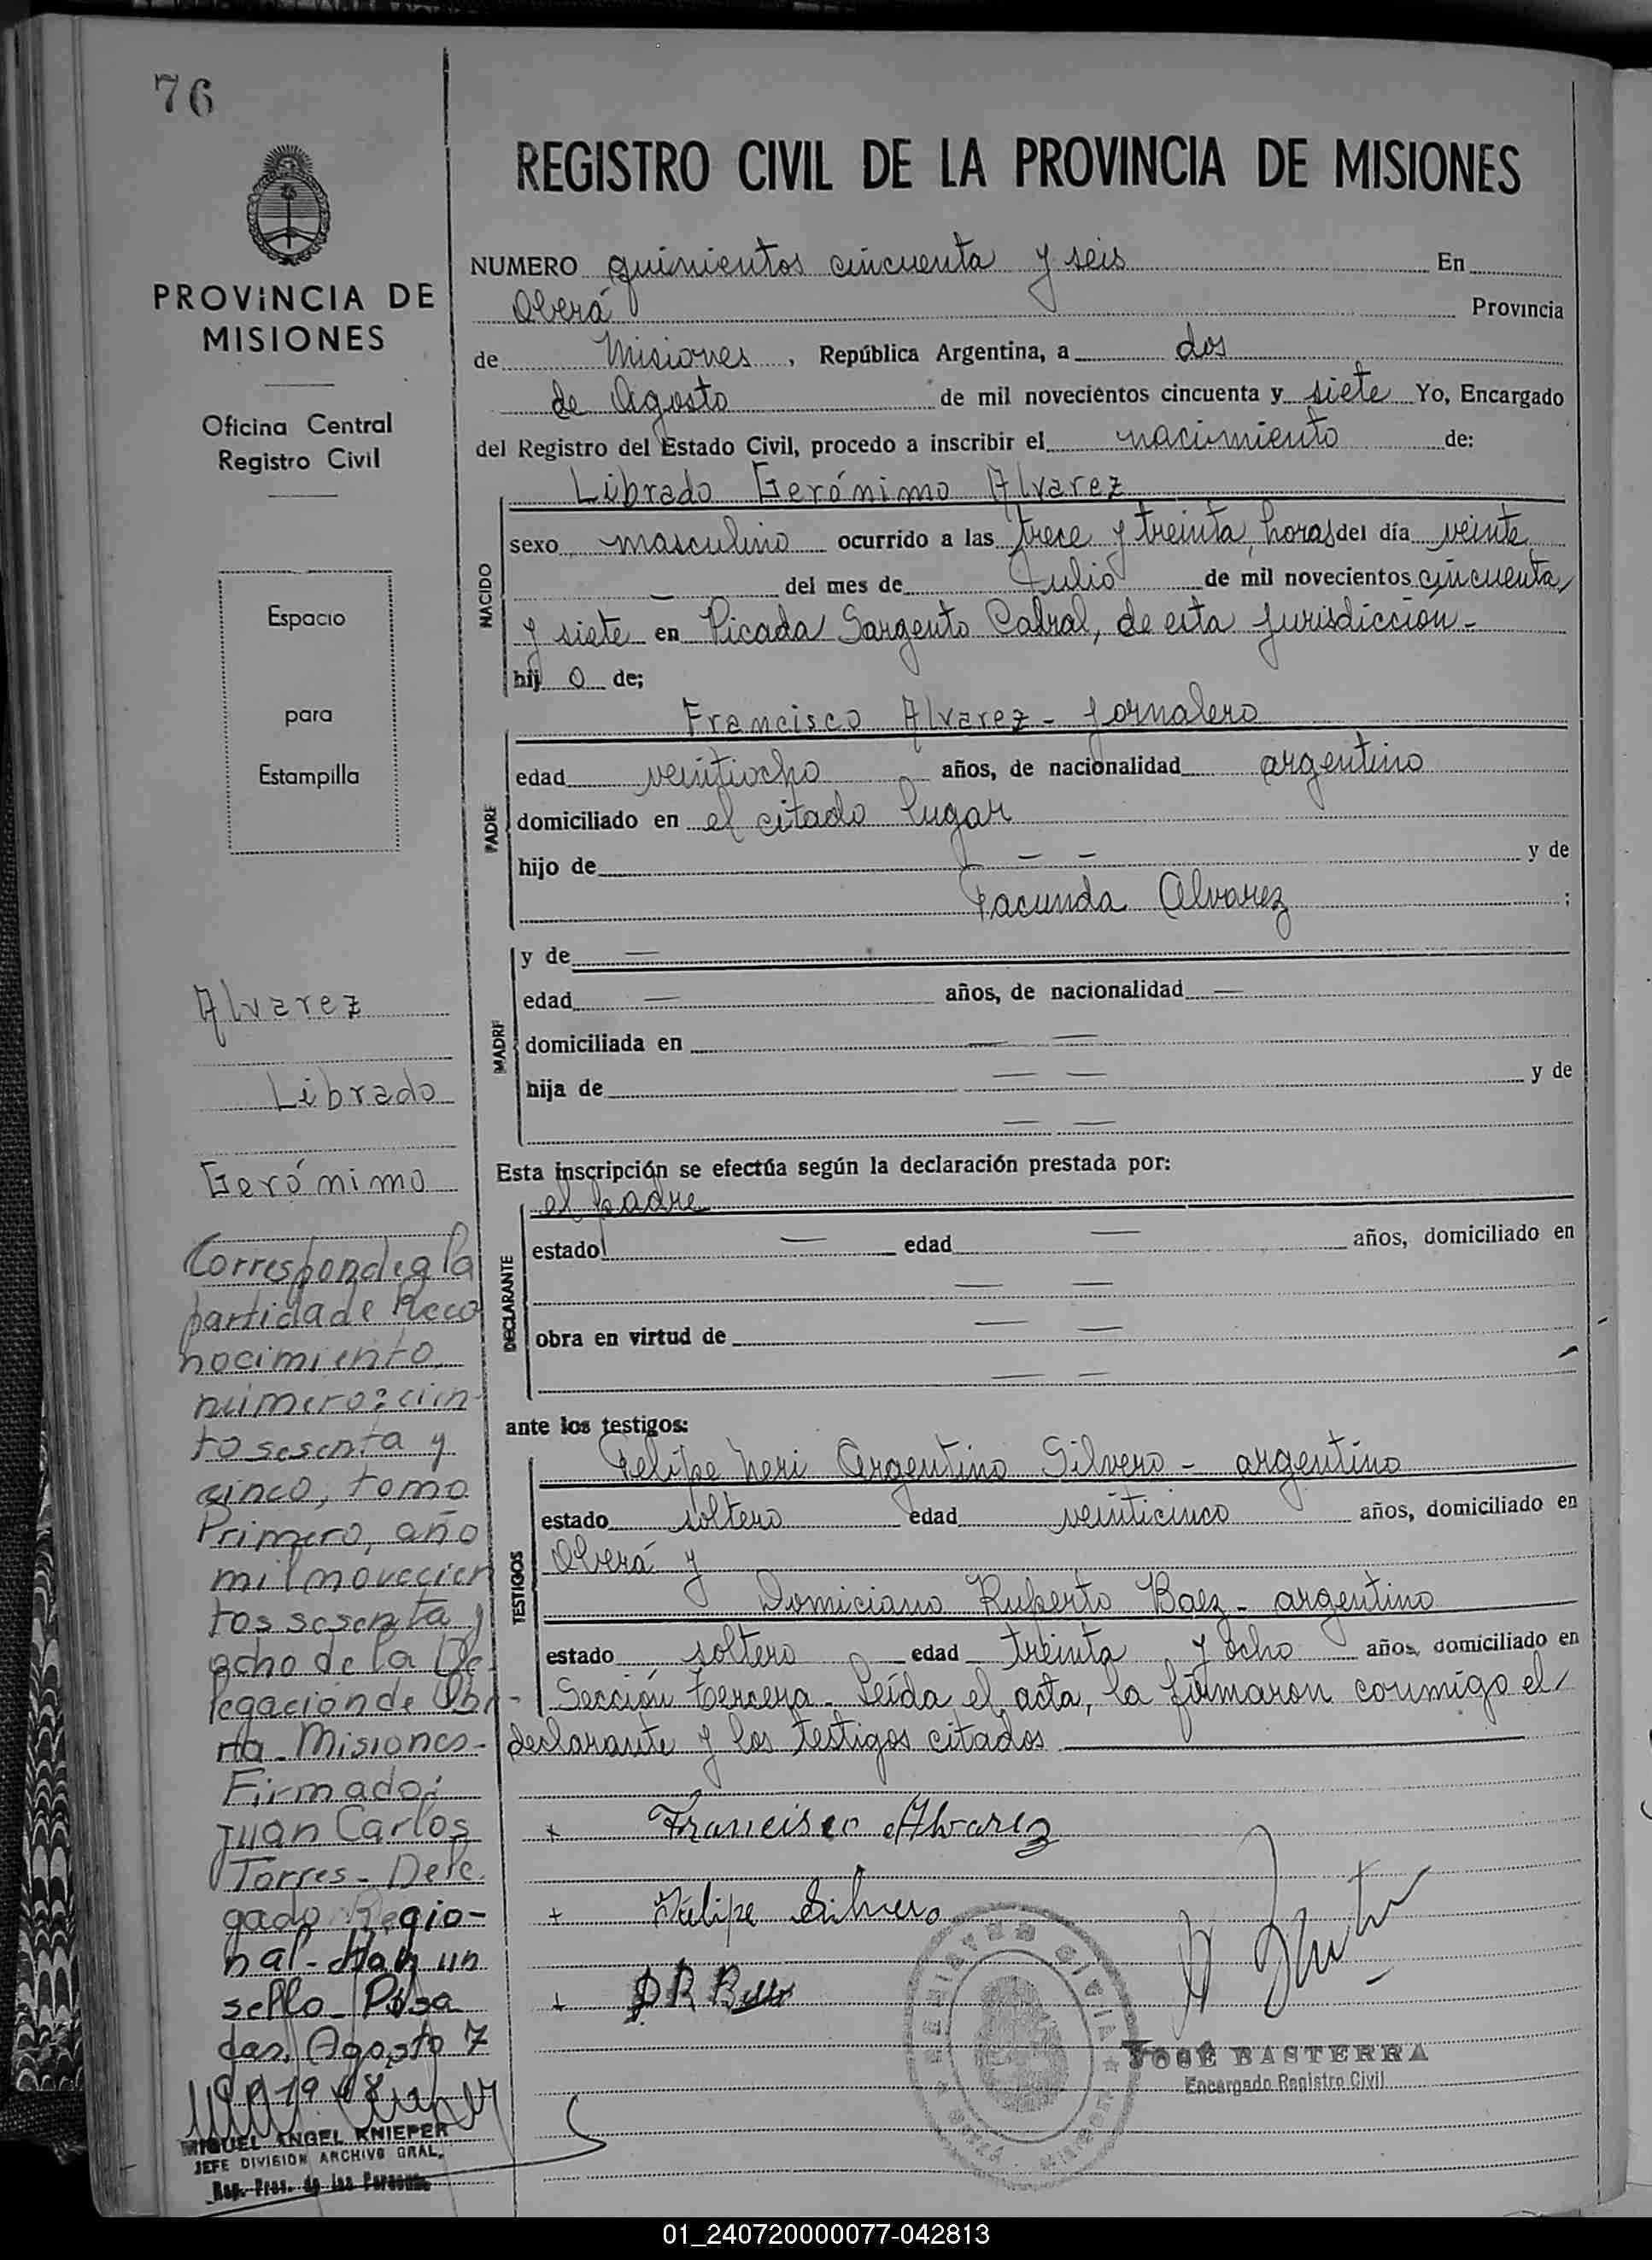 76
PROVINCIA DE
MISIONES
Oficina Central
Registro Civil
Espacio
para
Estampilla
Alvarez
Librado
Gerónimo
Corresponde a la
partida de Reco
nocimiento
número: cien-
to sesenta y
cinco, tomo
Primero, año
mil novecien
tos sesenta y
ocho de la De-
legación de Obe-
rá - Misiones -
Firmado:
Juan Carlos
Torres - Dele
gado Regio-
nal - Hay un
sello - Posa
das, Agosto 7
MIGUEL ANGEL KNIEPER
JEFE DIVISION ARCHIVO GRAL.
Reg. Prov. de las Personas
REGISTRO CIVIL DE LA PROVINCIA DE MISIONES
NUMERO quinientos cincuenta y seis En
Oberá Provincia
de Misiones, República Argentina, a dos
de Agosto de mil novecientos cincuenta y siete Yo, Encargado
del Registro del Estado Civil, procedo a inscribir el nacimiento de:
Librado Gerónimo Alvarez
NACIDO
sexo masculino ocurrido a las trece y treinta horas del día veinte
— del mes de Julio de mil novecientos cincuenta
y siete en Picada Sargento Cabral, de esta jurisdicción -
hij o de;
Francisco Alvarez - jornalero
PADRE
edad veintiocho años, de nacionalidad argentino
domiciliado en el citado lugar
hijo de — — y de
Facunda Alvarez ;
MADRE
y de —
edad — años, de nacionalidad —
domiciliada en — —
hija de — — y de
— —
Esta inscripción se efectúa según la declaración prestada por:
el padre
DECLARANTE
estado — edad — años, domiciliado en
— —
obra en virtud de — —
— —
ante los testigos:
Felipe Neri Argentino Silvero - argentino
TESTIGOS
estado soltero edad veinticinco años, domiciliado en
Oberá y
Domiciano Ruperto Baez - argentino
estado soltero edad treinta y ocho años, domiciliado en
Sección tercera - Leída el acta, la firmaron conmigo el
declarante y los testigos citados
+ Francisco Alvarez
+ Felipe Silvero
+ D R Baez
REGISTRO CIVIL
JOSÉ BASTERRA
Encargado Registro Civil
01_240720000077-042813